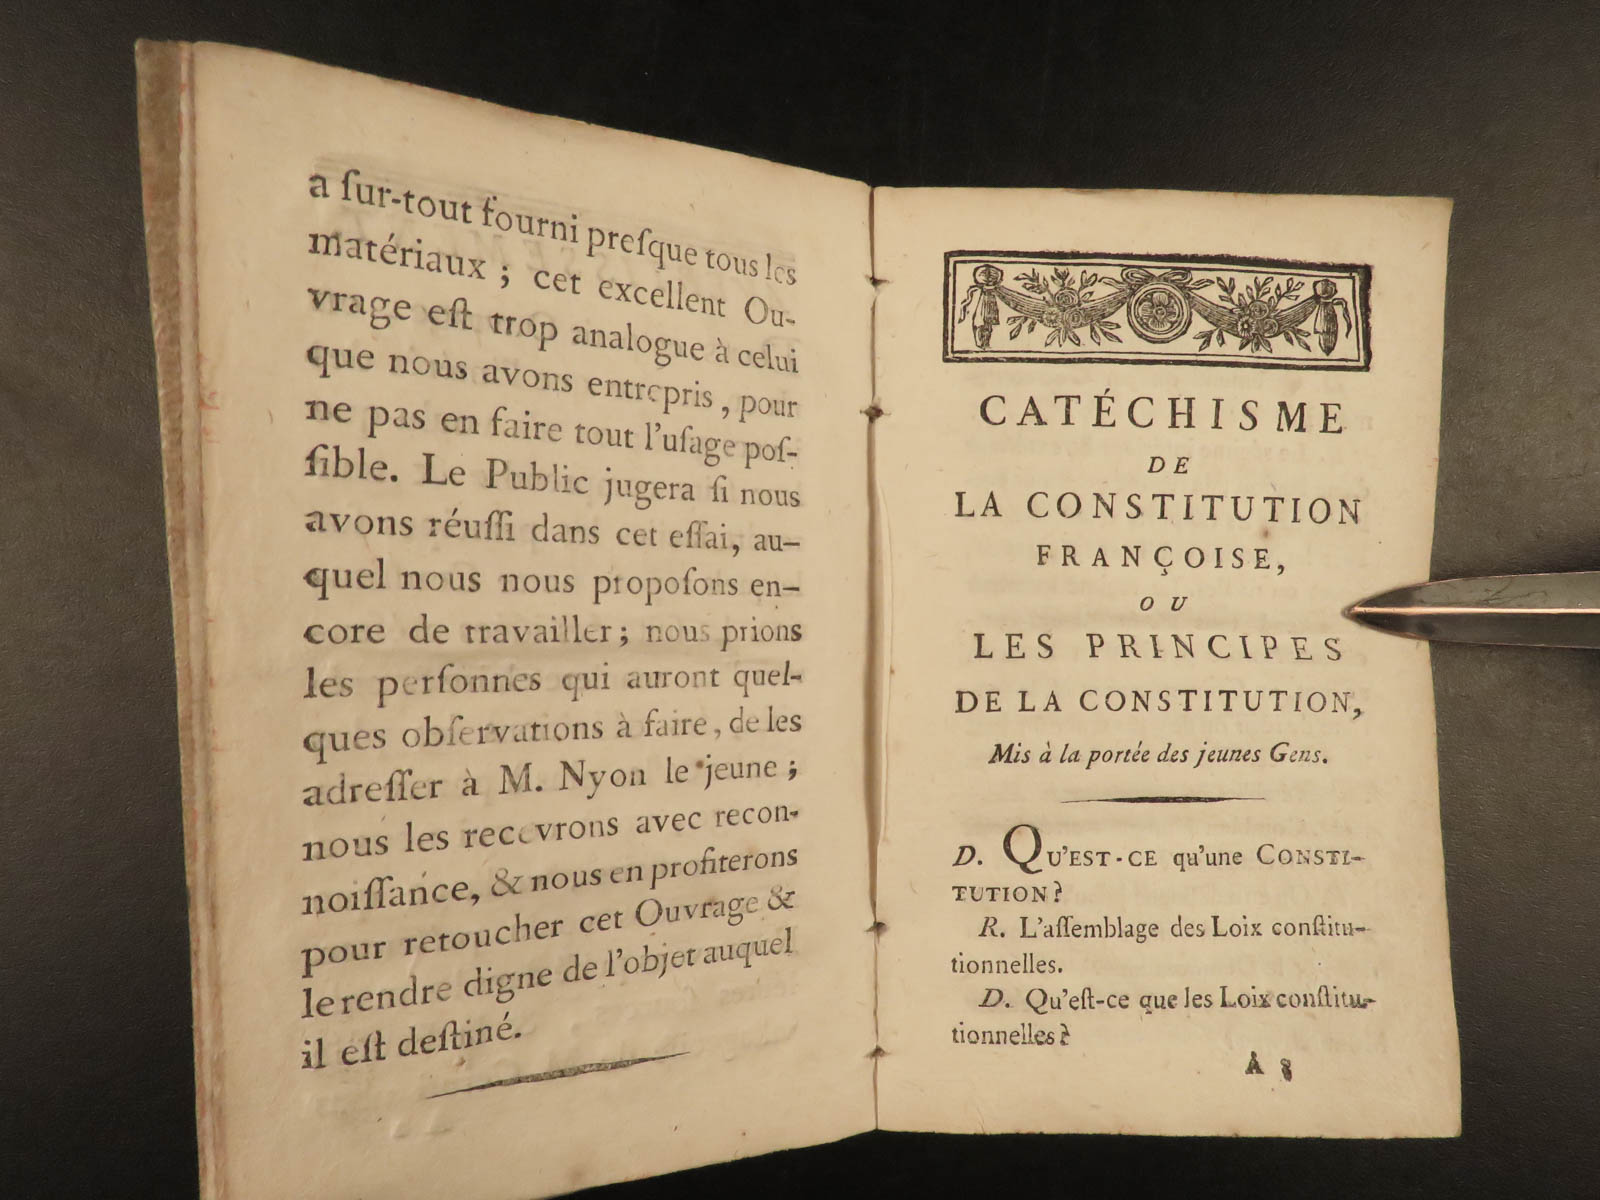 a ſur-tout fourni preſque tous les
matériaux ; cet excellent Ou-
vrage eſt trop analogue à celui
que nous avons entrepris, pour
ne pas en faire tout l'uſage poſ-
ſible. Le Public jugera ſi nous
avons réuſſi dans cet eſſai, au-
quel nous nous propoſons en-
core de travailler; nous prions
les perſonnes qui auront quel-
ques obſervations à faire, de les
adreſſer à M. Nyon le jeune ;
nous les recevrons avec recon-
noiſſance, & nous en profiterons
pour retoucher cet Ouvrage &
le rendre digne de l'objet auquel
il eſt deſtiné.
CATÉCHISME
DE
LA CONSTITUTION
FRANÇOISE,
OU
LES PRINCIPES
DE LA CONSTITUTION,
Mis à la portée des jeunes Gens.
D. QU'EST-CE qu'une CONSTI-
TUTION?
R. L'aſſemblage des Loix conſtitu-
tionnelles.
D. Qu'eſt-ce que les Loix conſtitu-
tionnelles?
A